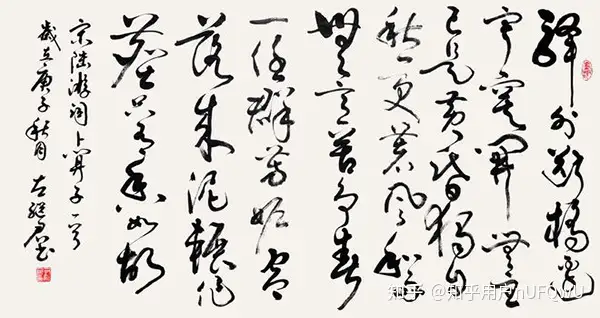 驛外斷橋邊
寂寞開無主
已是黃昏獨自
愁更著風和雨
無意苦爭春
一任群芳妒零
落成泥碾作
塵只有香如故
宋陸游詞卜算子一首
歲在庚子秋月
知乎 @知乎用户nUFQWU